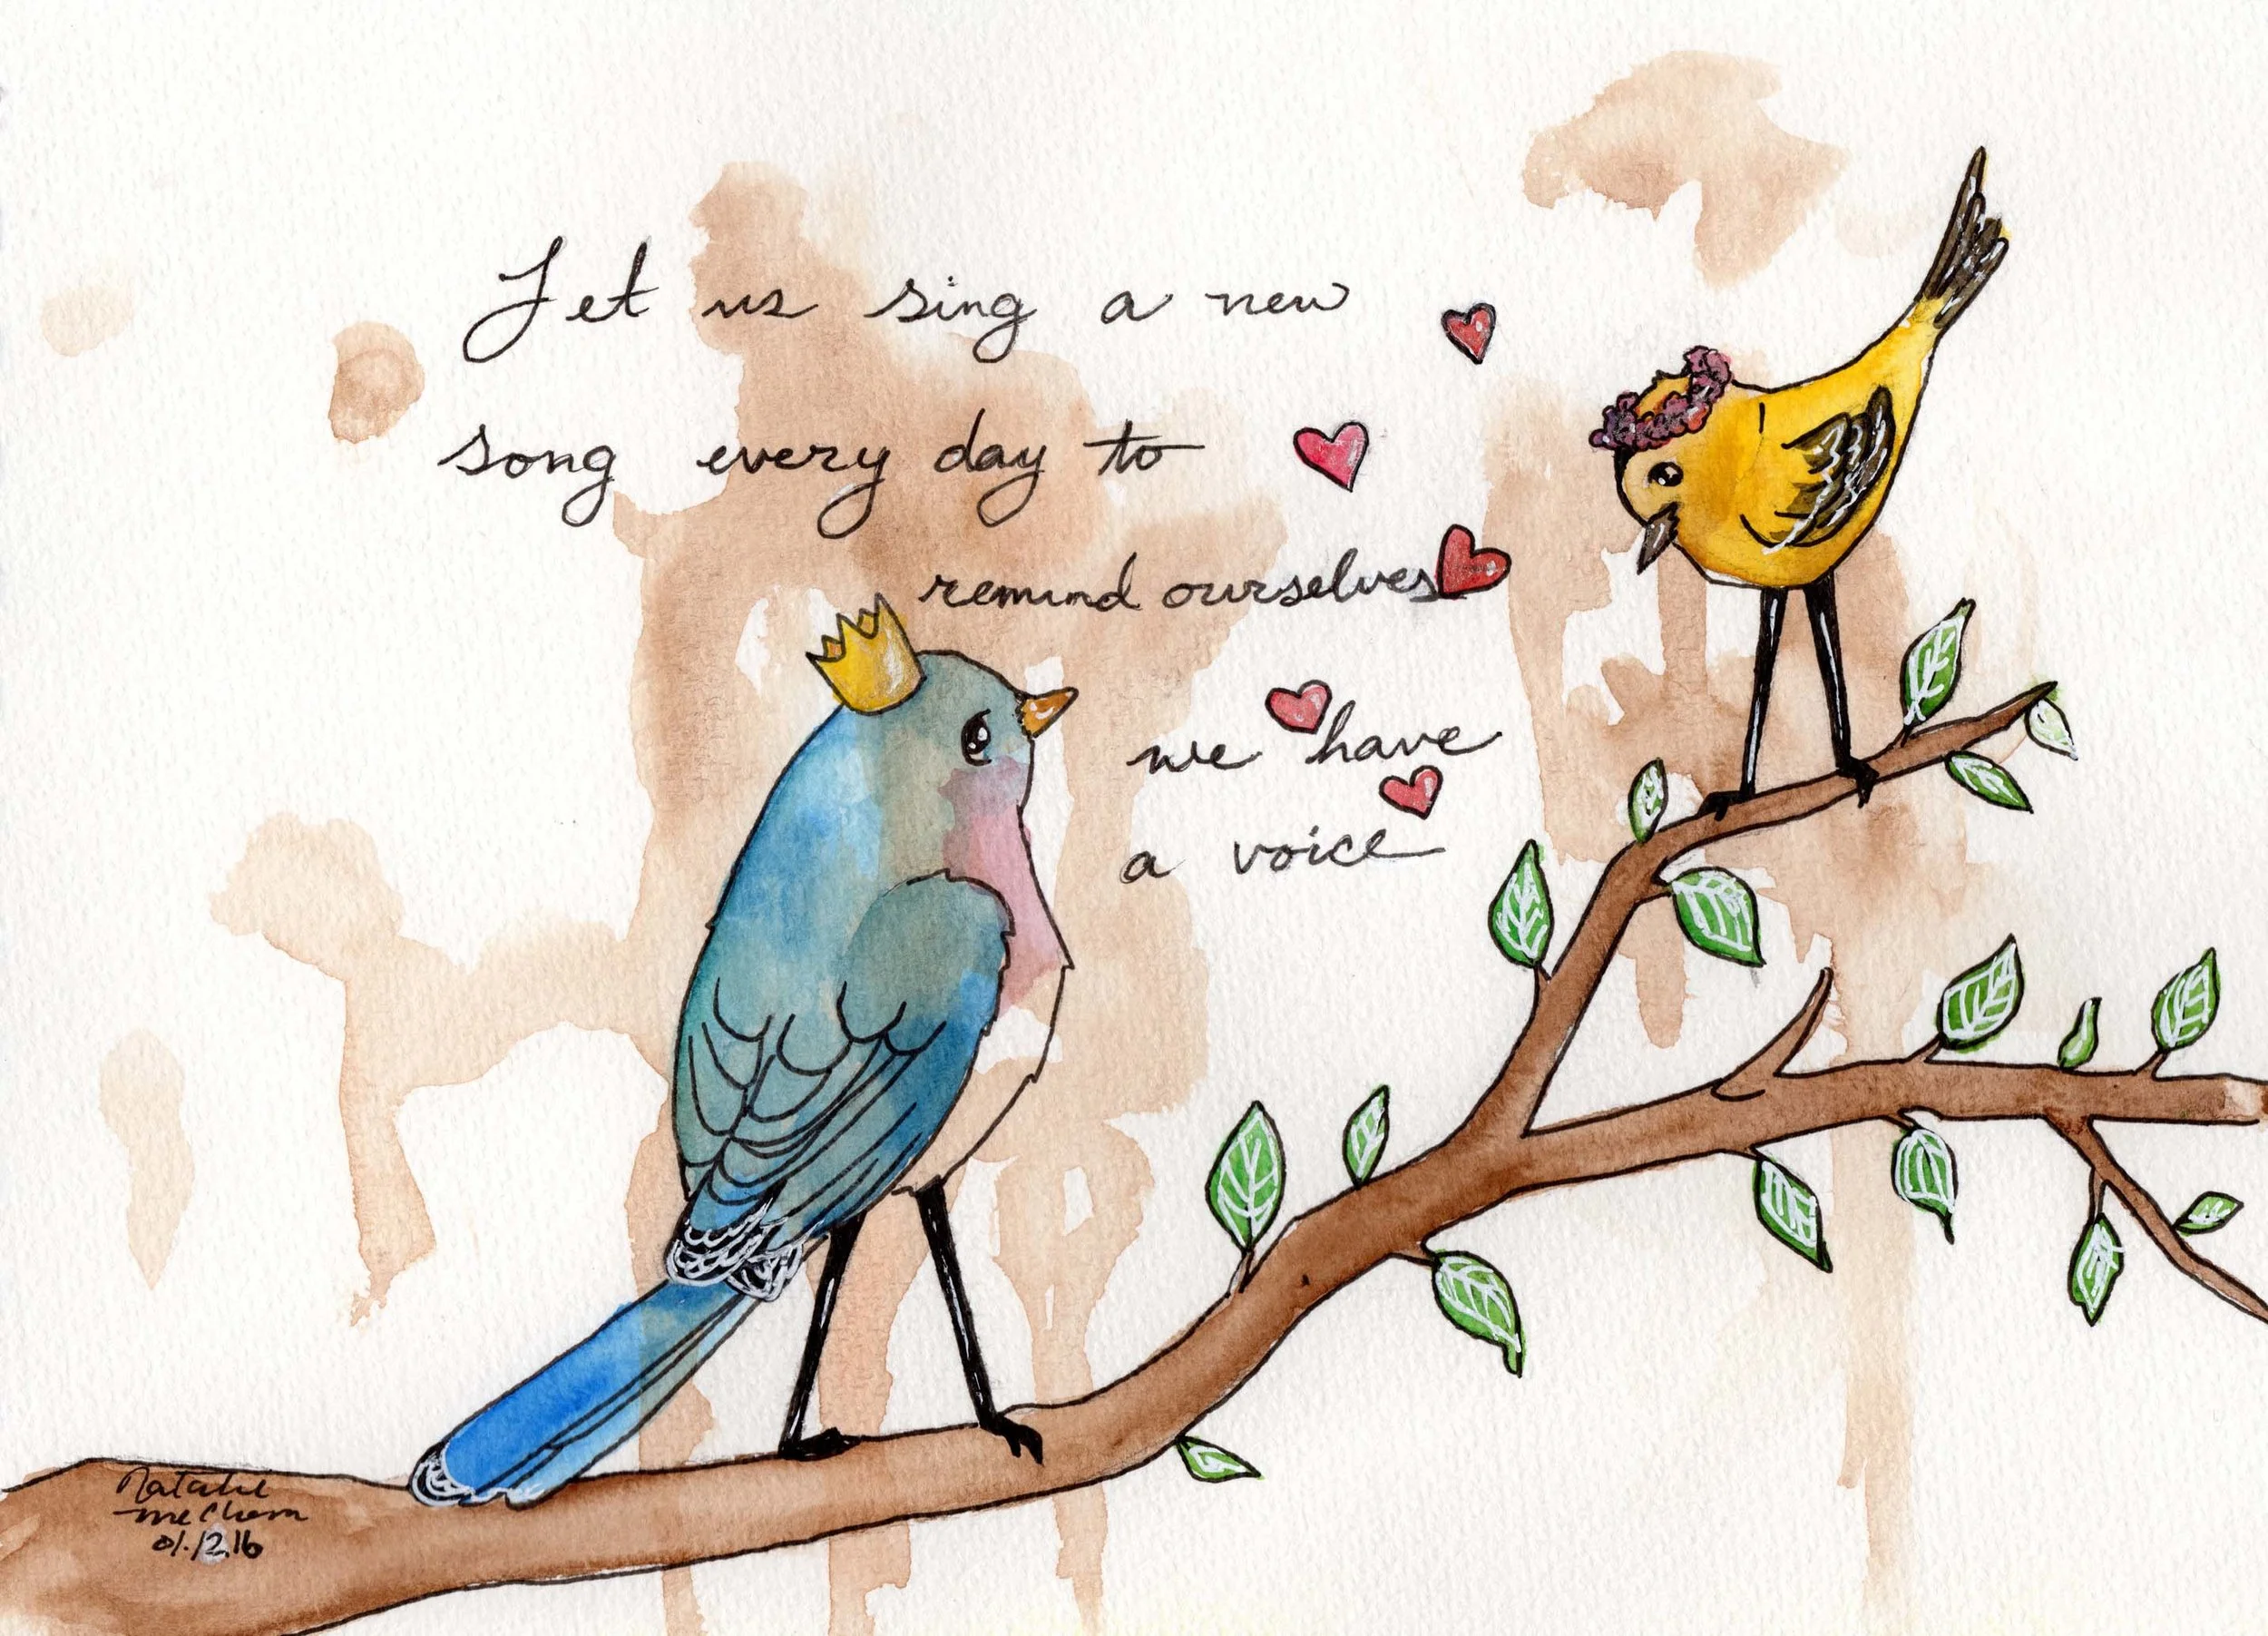 Let us sing a new
song every day to
remind ourselves
we have
a voice
Natalie
mcClem
01.12.16